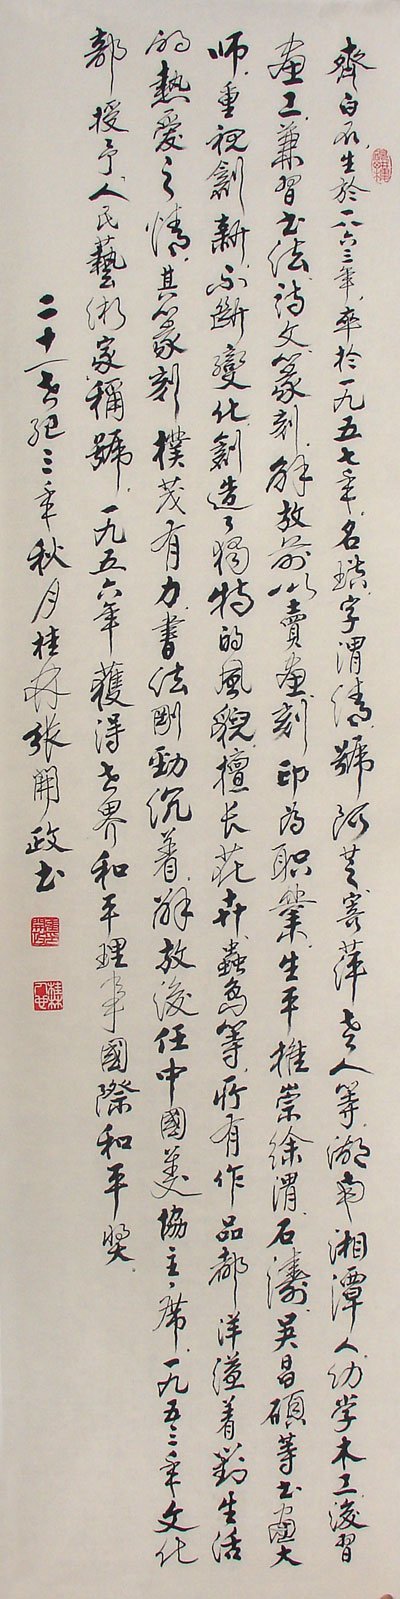 齊白石,生於一八六三年,卒於一九五七年,名璜,字渭清,號阿芝,寄萍老人等,湖南湘潭人,幼學木工,後習
畫工,兼習书法,詩文,篆刻,解放前以賣畫,刻印為职業,生平推崇徐渭,石濤,吴昌碩等书畫大
师,重視創新,不斷變化,創造了獨特的風貌,擅长花卉,蟲鳥等,所有作品都洋溢着對生活
的熱愛之情,其篆刻樸茂有力,書法剛勁沉着,解放後任中國美協主席,一九五三年文化
部授予人民藝術家稱號,一九五六年獲得世界和平理事國際和平奖.
二十一世纪之年秋月桂林張開政书